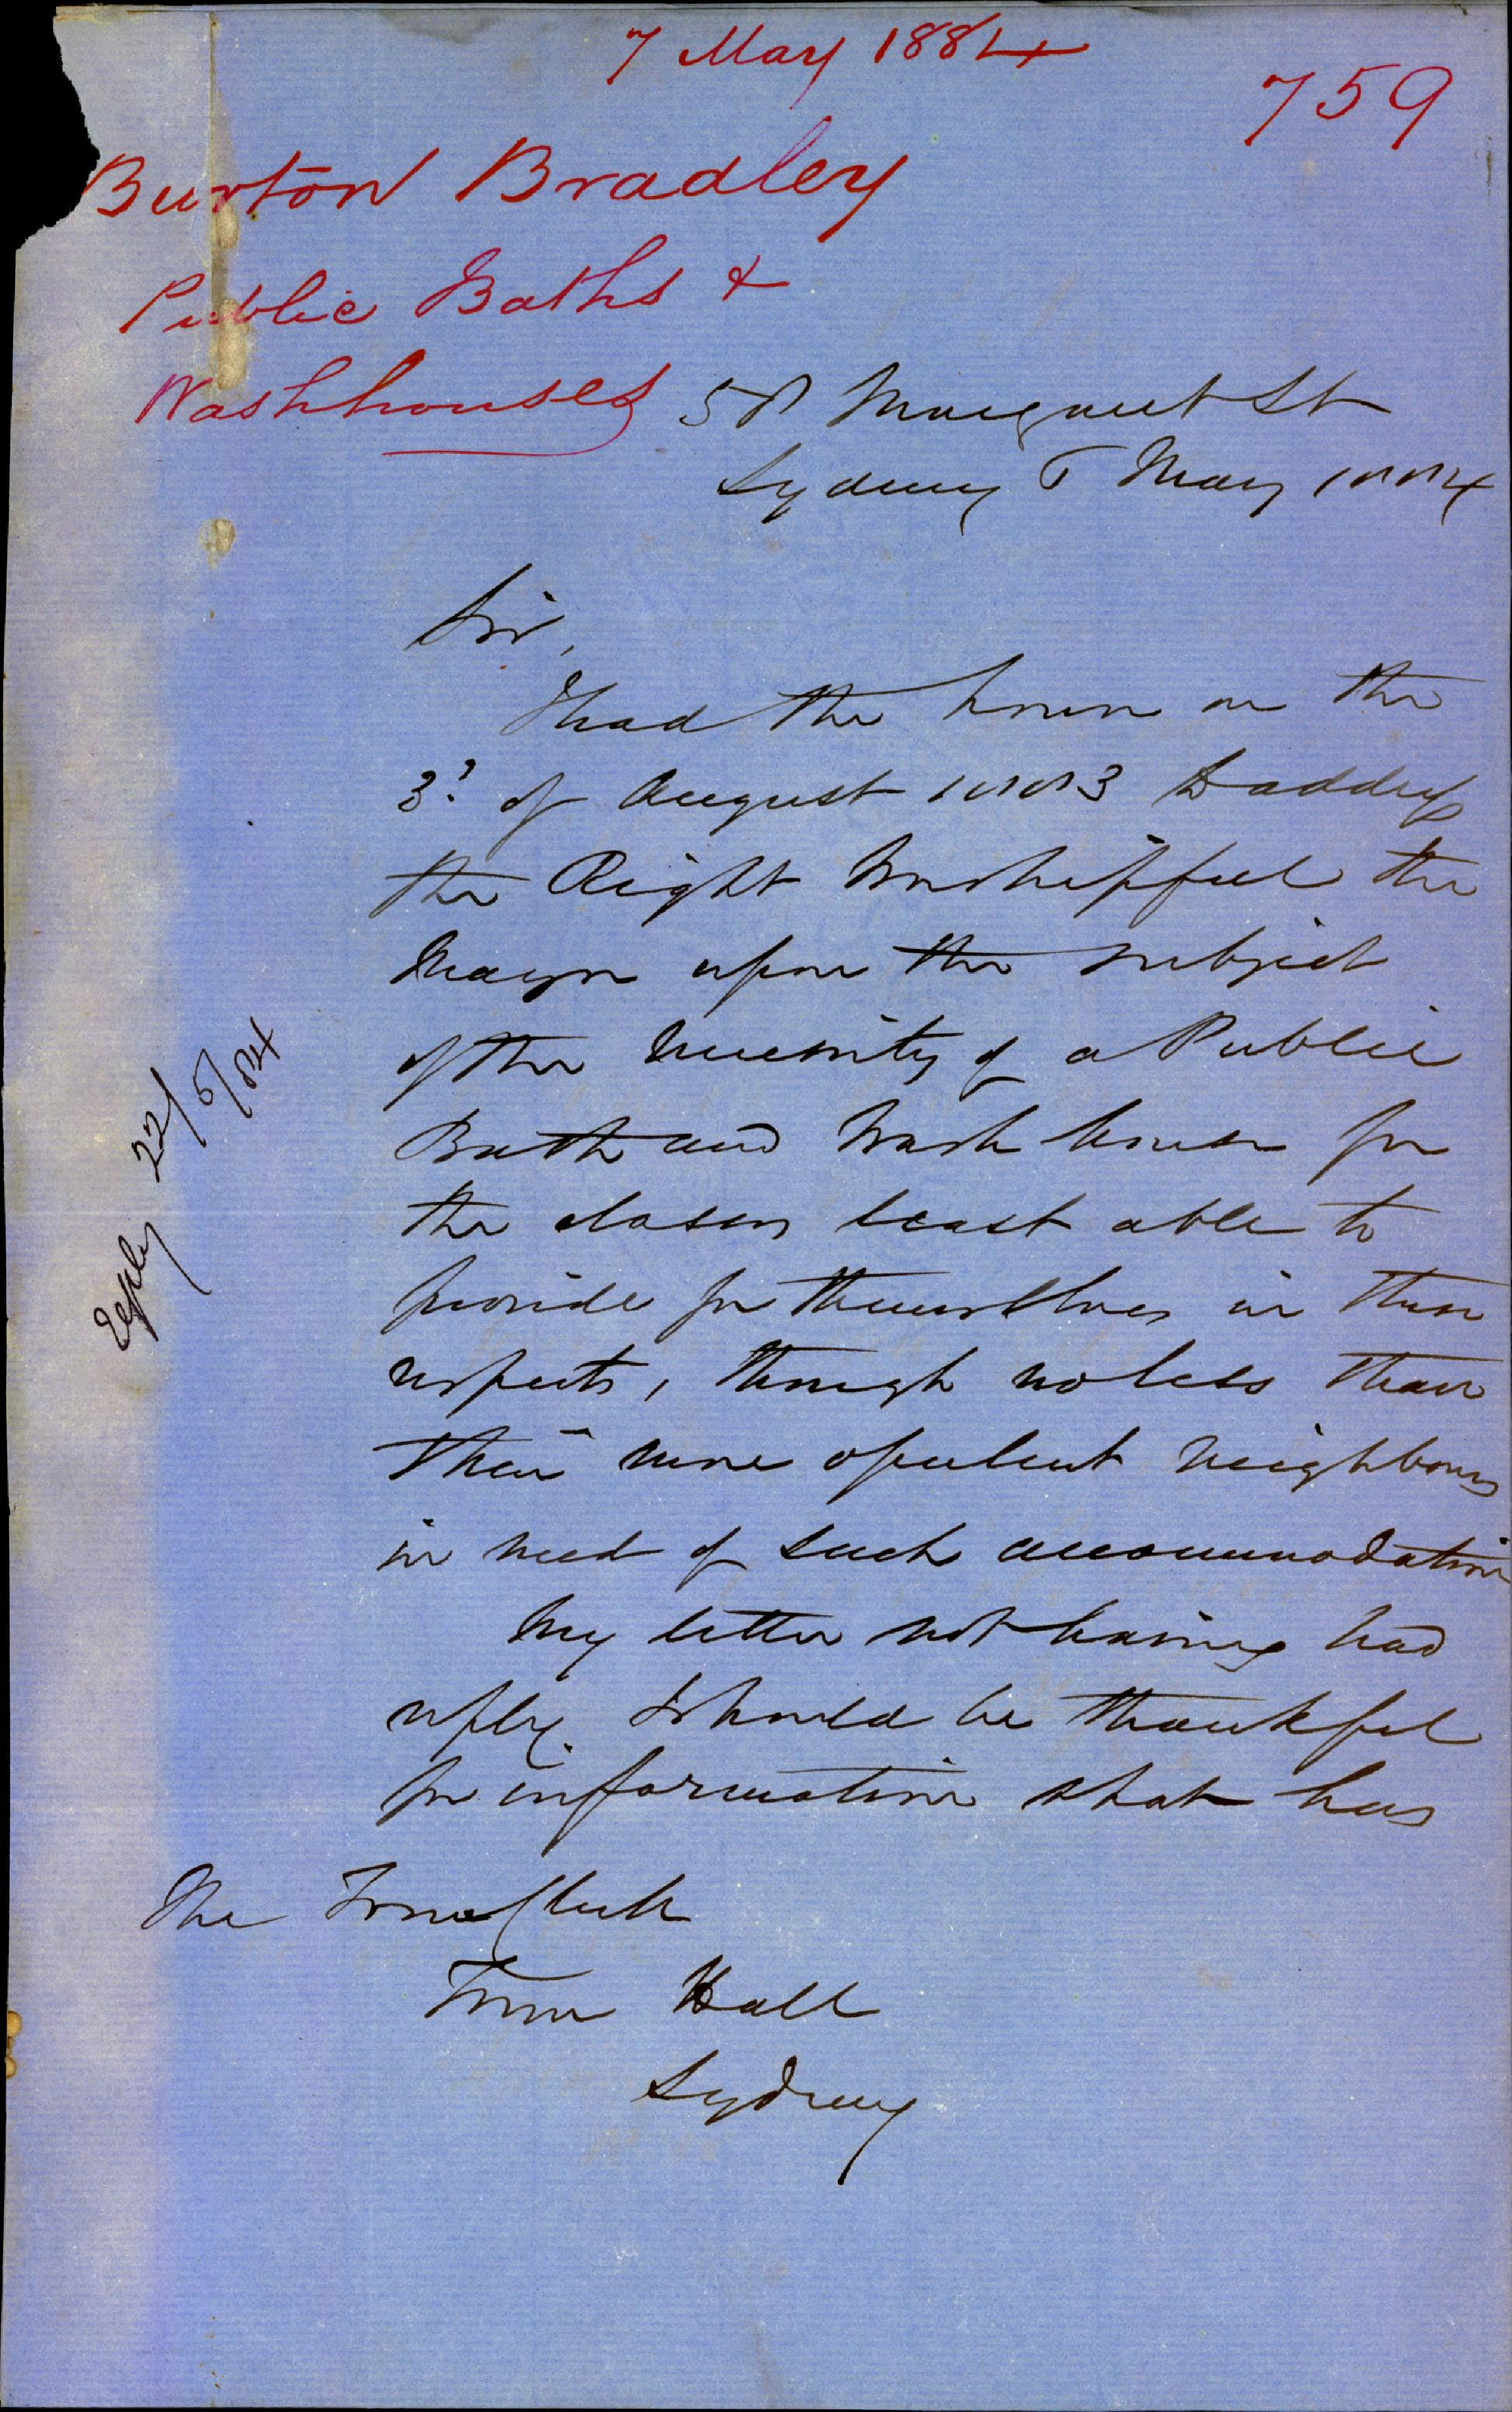 7 May 1884
759
Burton Bradley
Public Baths &
Washhouses
58 Margaret St
Sydney 6 May 1884
Sir,
I had the honor on the
3d of August 1883 to address
the Right Worshipful the
Mayor upon the subject
of the necessity of a Public
Bath and Wash house for
the classes least able to
provide for themselves in these
respects, though no less than
their more opulent neighbours
in need of such accommodation
My letter not having had
reply I should be thankful
for information what has
The Town Clerk
Town Hall
Sydney
Reply 22/5/84